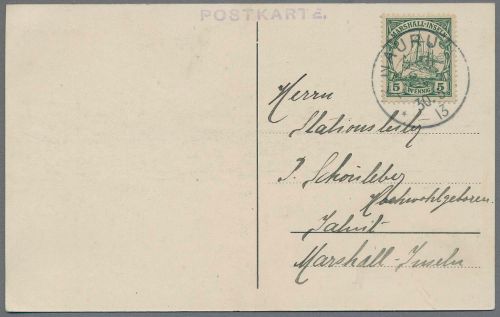 POSTKARTE.
MARSHALL-INSELN
5 PFENNIG 5
NAURU
30.
13
Herrn
Stationsleiter
Schönleber
Hochwohlgeboren
Jaluit
Marshall-Inseln